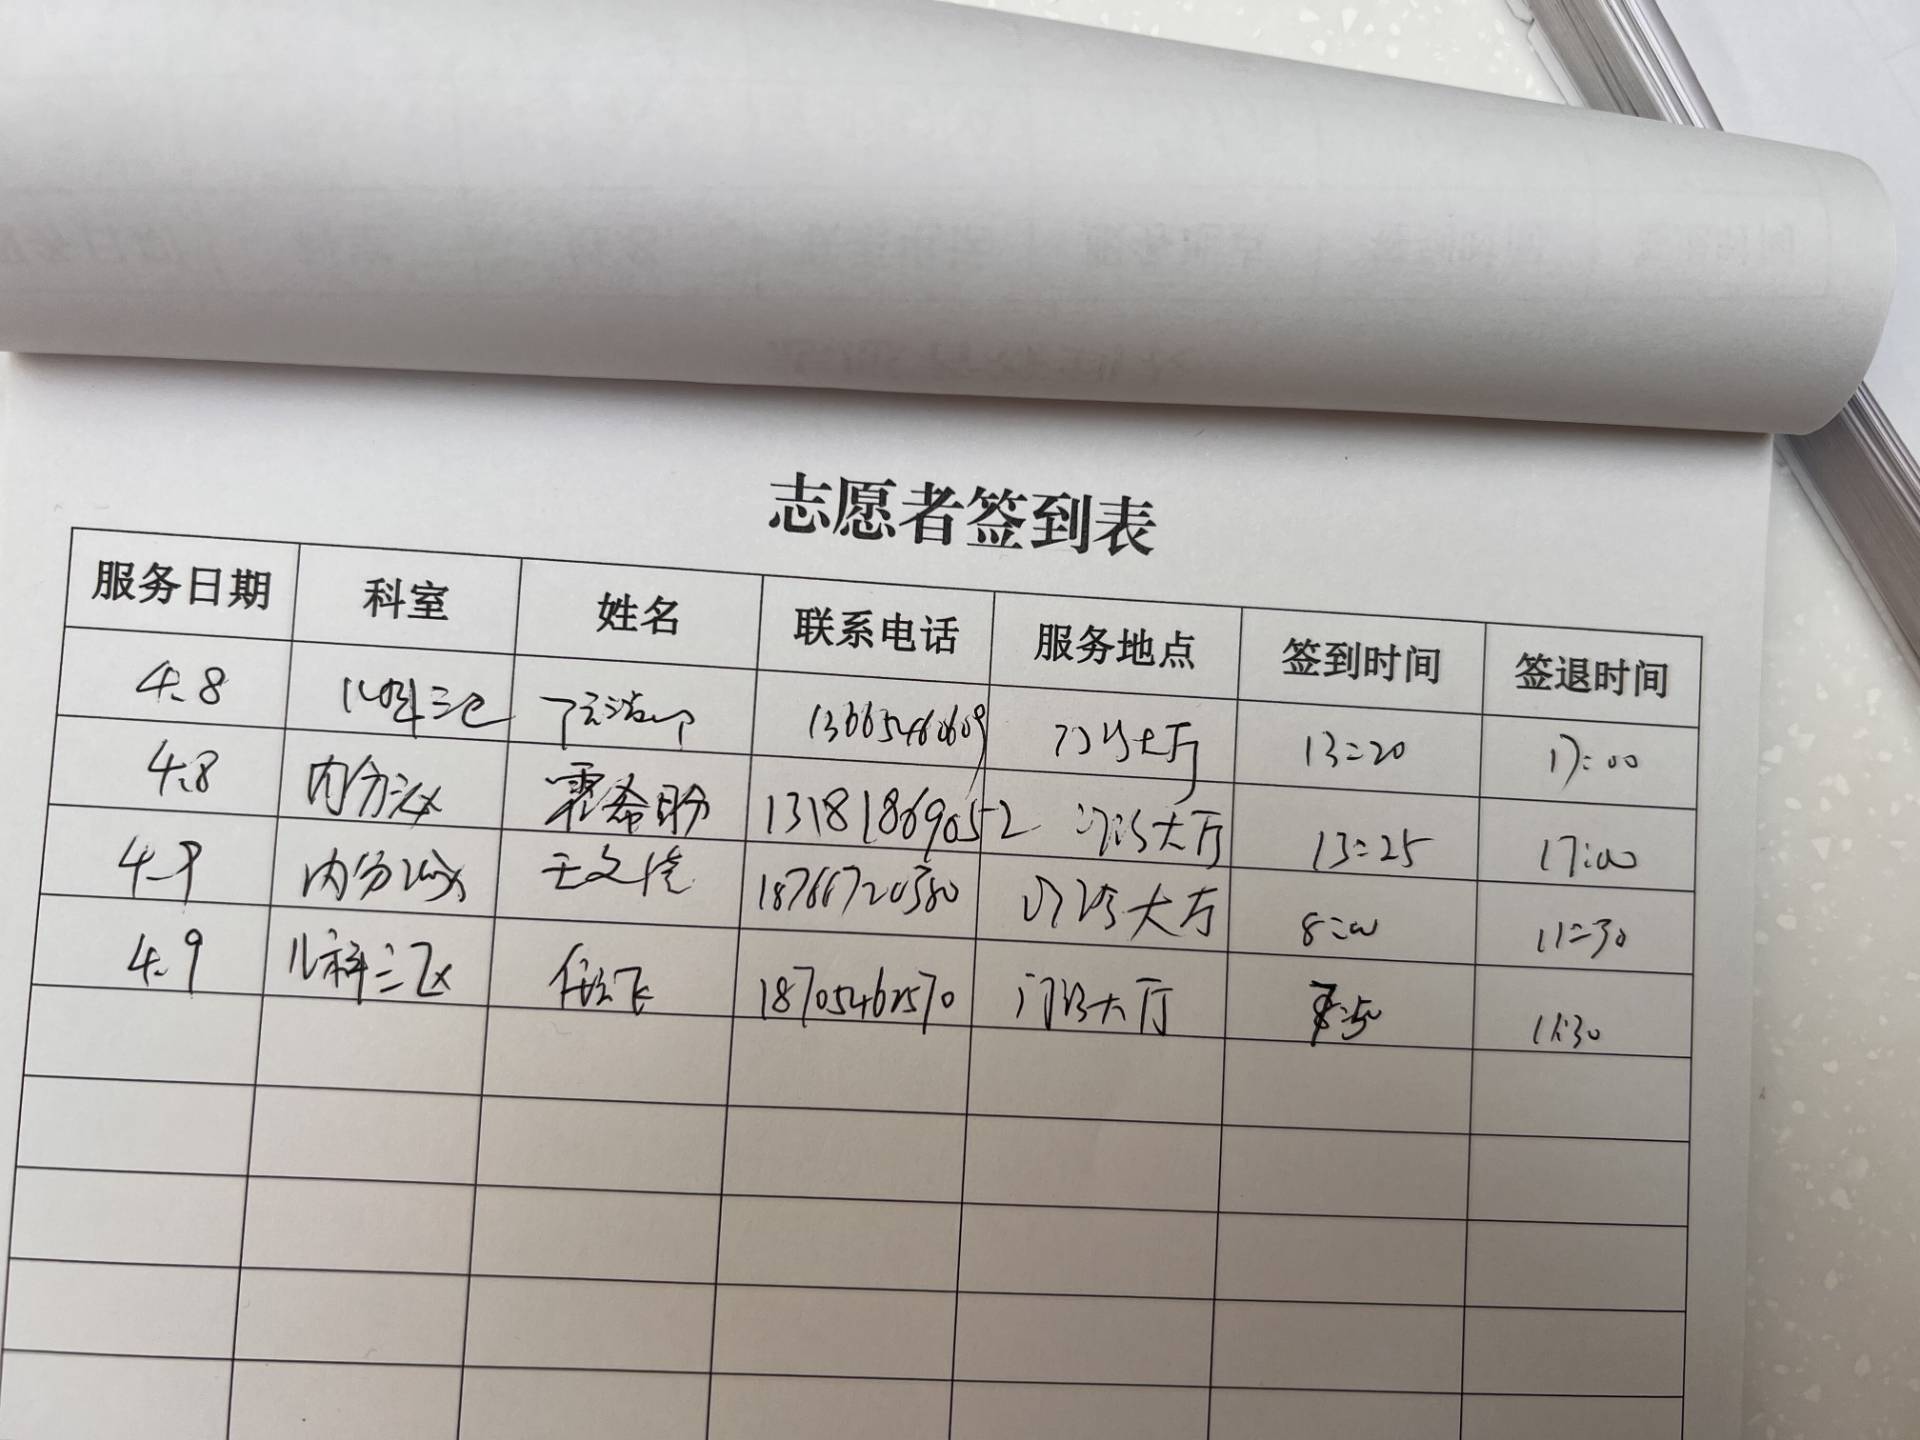 志愿者签到表
服务日期 科室 姓名 联系电话 服务地点 签到时间 签退时间
4.8 儿科三区 13665460609 门诊大厅 13:20 17:00
4.8 内分泌 霍希盼 13181869052 门诊大厅 13:25 17:00
4.9 内分泌 王文倩 18766720380 门诊大厅 8:00 11:30
4.9 儿科三区 18705462570 门诊大厅 11:30